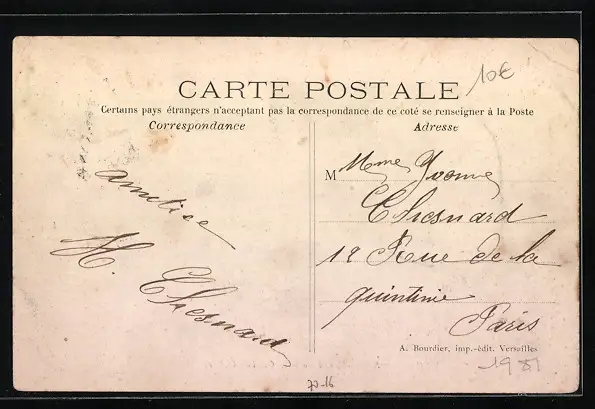 10€
CARTE POSTALE
Certains pays étrangers n'acceptant pas la correspondance de ce coté se renseigner à la Poste
Correspondance
amitiée
H. Chesnard
Adresse
M Mme Yvonne
Chesnard
12 Rue de la
quintinie
Paris
A. Bourdier, imp.-édit. Versailles
1981